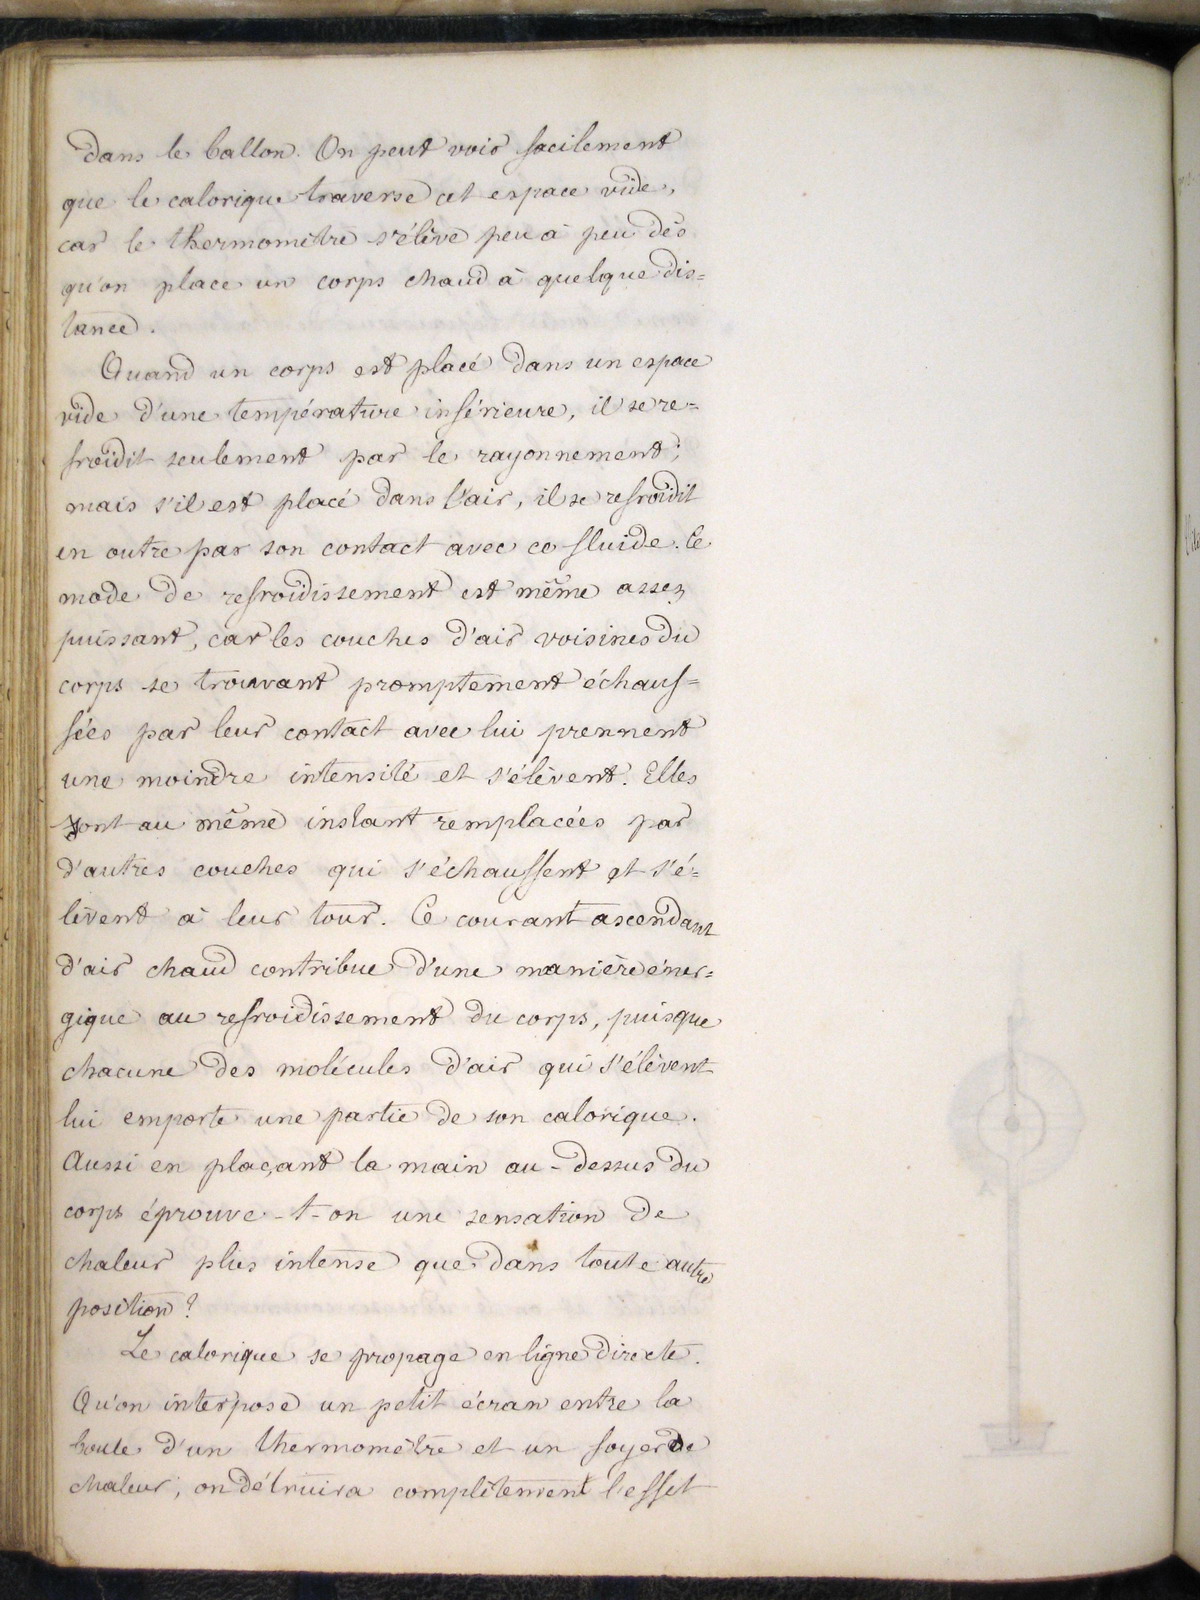 dans le ballon. On peut voir facilement
que le calorique traverse cet espace vide,
car le thermomètre s'élève peu à peu dès
qu'on place un corps chaud à quelque dis=
tance.
Quand un corps est placé dans un espace
vide d'une température inférieure, il se re=
froidit seulement par le rayonnement;
mais s'il est placé dans l'air, il se refroidit
en outre par son contact avec ce fluide. Ce
mode de refroidissement est même assez
puissant, car les couches d'air voisines du
corps se trouvant promptement échauf=
fées par leur contact avec lui prennent
une moindre intensité et s'élèvent. Elles
sont au même instant remplacées par
d'autres couches qui s'échauffent et s'é=
lèvent à leur tour. Ce courant ascendant
d'air chaud contribue d'une manière éner=
gique au refroidissement du corps, puisque
chacune des molécules d'air qui s'élèvent
lui emporte une partie de son calorique.
Aussi en plaçant la main au-dessus du
corps éprouve-t-on une sensation de
chaleur plus intense que dans toute autre
position?
Le calorique se propage en ligne directe.
Qu'on interpose un petit écran entre la
boule d'un thermomètre et un foyer de
chaleur, on détruira complètement l'effet